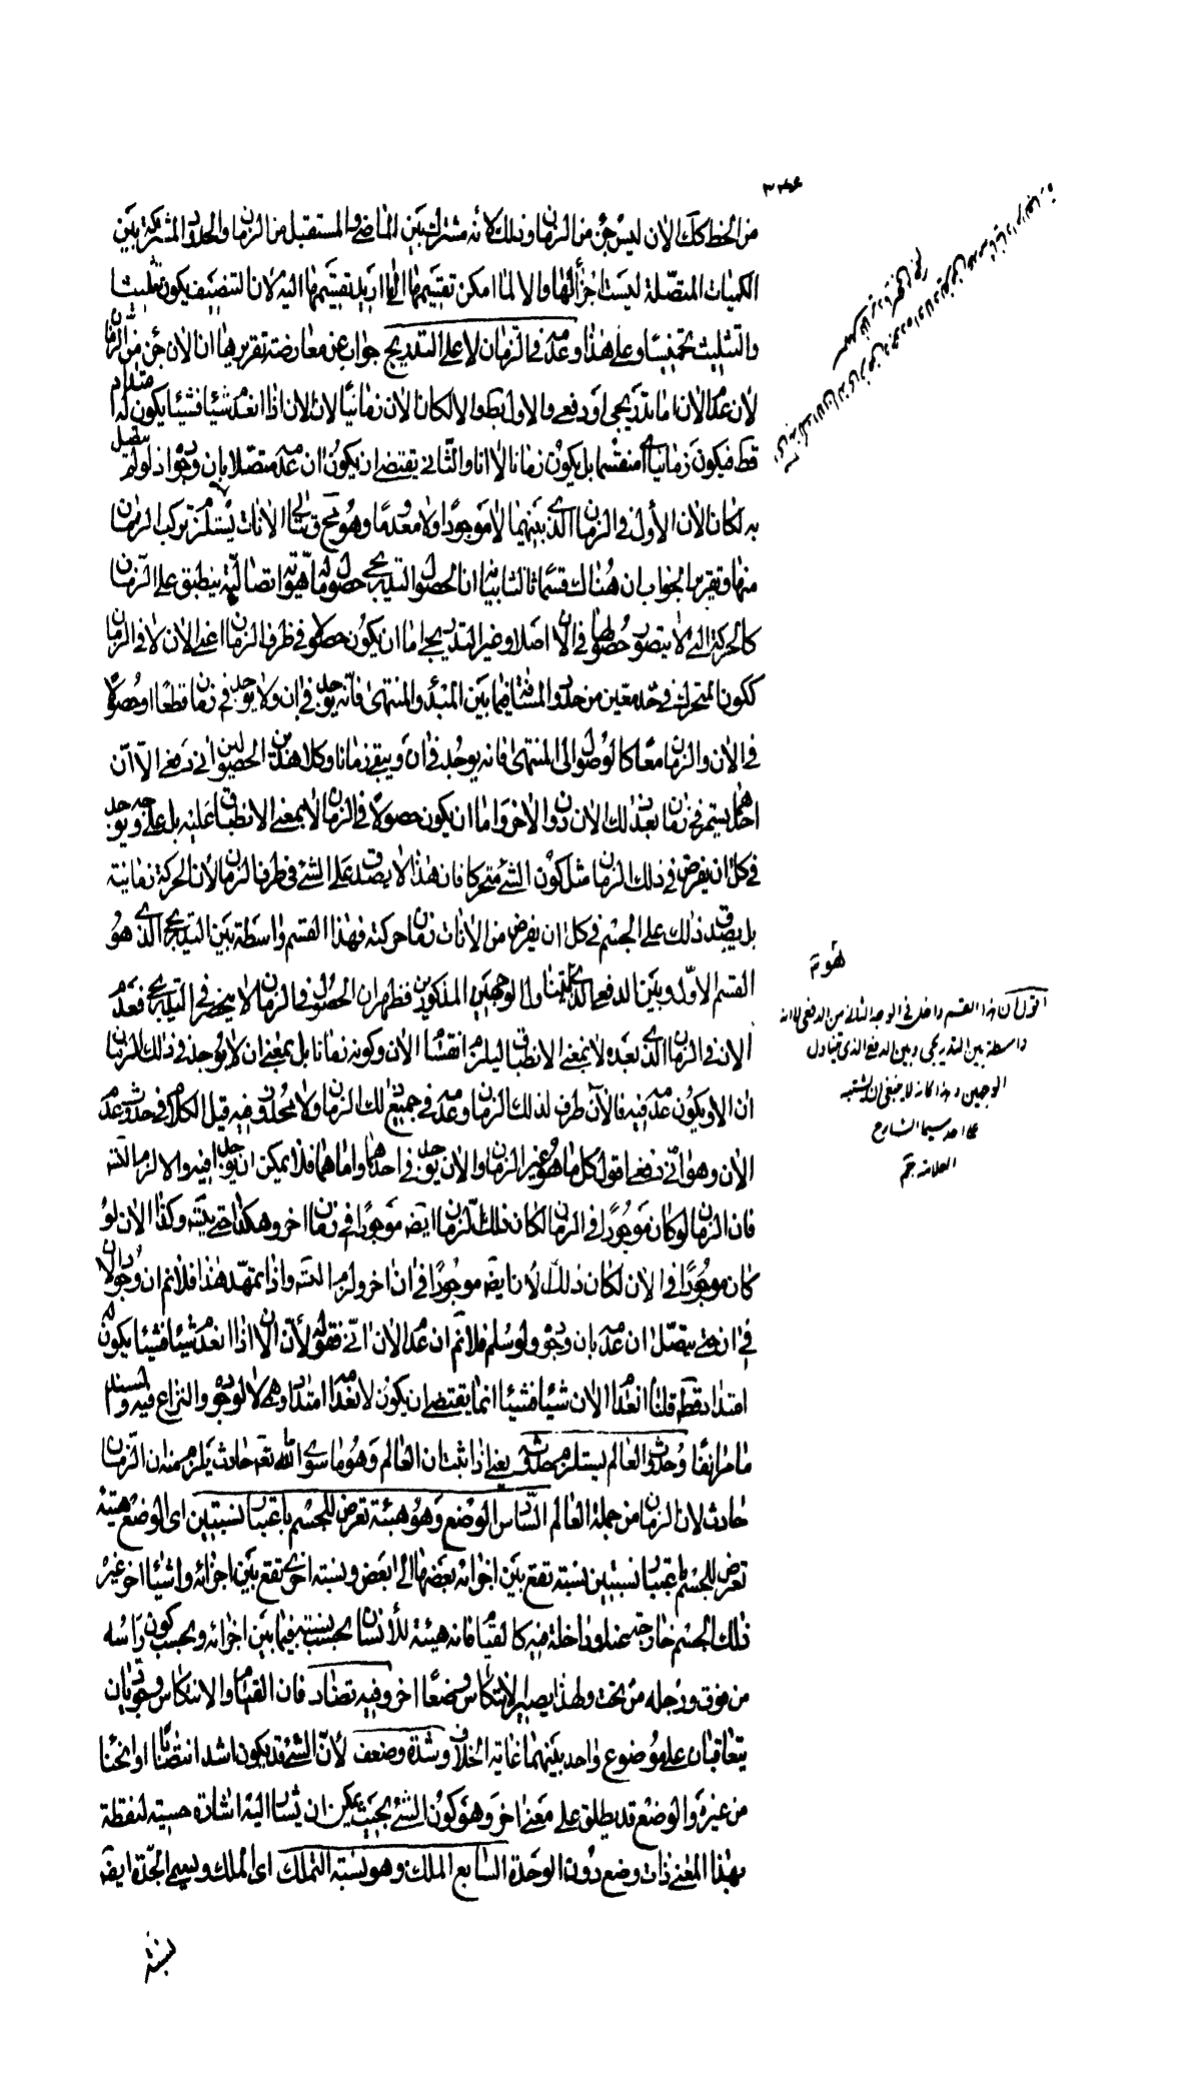 ٣٤٦
من الخط كك الآن ليس جزء من الزمان وذلك لأنه مشترك بين الماضى والمستقبل من الزمان والحدود المشتركة بين
الكميات المتصلة ليست اجزاء لها والا لما امكن تقسيمها الى ما اريد تقسيمها اليه لان التنصيف يكون تثليثا
والتثليث تخميسا وعلى هذا وعدمه فى الزمان لا على التدريج جواب عن معارضة تقريرها ان الان جزء من الزمان
لان عدم الان اما تدريجى او دفعى والاول بط والا لكان الان زمانيا لان الان اذا انعدم شيئا فشيئا يكون له امتداد
قط فيكون زمانيا اى منقسما بل يكون زمانا لا انا والثانى يقتضى ان يكون ان عدمه متصلا بان وجوده اذ لو لم يتصل
به لكان الان الاول فى الزمان الذى بينهما لا موجودا ولا معدوما وهو مح وتتالى الانات يستلزم تركب الزمان
منها وتقرير الجواب ان هناك قسما ثالثا بيانه ان الحصول التدريجى حصول ما له هوية اتصالية ينطبق على الزمان
كالحركة التى لا يتصور حصولها فى الان اصلا وغير التدريجى اما ان يكون حصوله فى طرف الزمان اعنى الان لا فى الزمان
ككون المتحرك فى حد معين من حدود المسافة فيما بين المبدء والمنتهى فانه يوجد فى ان ولا يوجد فى زمان قطعا او حصولا
فى الان والزمان معا كالوصول الى المنتهى فانه يوجد فى ان ويبقى زمانا وكلا هذين الحصولين انى دفعى الا ان
احدهما يستمر فى زمان بعد ذلك الان دون الاخر واما ان يكون حصولا فى الزمان لا بمعنى الانطباق عليه بل على وجه يوجد
فى كل ان يفرض فى ذلك الزمان مثل كون الشئ متحركا فان هذا لا يصدق على الشئ فى طرف الزمان لأن الحركة زمانية
بل يصدق ذلك على الجسم فى كل ان يفرض من الانات زمان حركته فهذا القسم واسطة بين التدريجى الذى هو
القسم الاول وبين الدفعى الذى يتناول الوجهين المذكورين فظهر ان الحصول فى الزمان لا ينحصر فى التدريجى فعدم
الان فى الزمان الذى بعده لا بمعنى الانطباق ليلزم انقسام الان وكونه زمانا بل بمعنى ان لا يوجد فى ذلك الزمان
ان الا ويكون عدمه فيه فالآن طرف لذلك الزمان وعدمه فى جميع ذلك الزمان ولا محذور فيه قيل الكلام فى حدوث عدم
الان وهو انى دفعى اقول كل ما هو غير الزمان والان يوجد فى احدهما واما هما فلا يمكن ان يوجدا فيه والا لزم التسه
فان الزمان لو كان موجودا فى الزمان لكان ذلك الزمان ايضه موجودا فى زمان اخر وهكذا حتى يتسه وكذا الان لو
كان موجودا فى الان لكان ذلك الان ايضه موجودا فى ان اخر ولزم التسه واذا تمهد هذا فلانم ان وجود الان
فى ان حتى يتصل ان عدمه بان وجوده ولو سلم فلانم ان عدم الان انى فقوله لأن الان اذا انعدم شيئا فشيئا يكون له
امتداد قط قلنا انعدام الان شيئا فشيئا انما يقتضى ان يكون لانعدامه امتداد وهو لا لوجوده والنزاع فيه والسند
ما مر انفا وحدوث العالم يستلزم حدوثه يعنى اذا ثبت ان العالم وهو ما سوى الله تعه حادث يلزم منه ان الزمان
حادث لان الزمان من جملة العالم السادس الوضع وهو هيئة تعرض للجسم باعتبار نسبتين اى الوضع هيئة
تعرض للجسم باعتبار نسبتين نسبة تقع بين اجزائه بعضها الى بعض ونسبة اخرى تقع بين اجزائه واشياء اخر غير
ذلك الجسم خارجة عنه او داخلة فيه كالقيام فانه هيئة للأنسان بحسب نسبته فيما بين اجزائه وبحسب كون راسه
من فوق ورجله من تحت ولهذا يصير الانتكاس وضعا اخر وفيه تضاد فان القيام والانتكاس وجوديان
يتعاقبان على موضوع واحد بينهما غاية الخلاف وشدة وضعف لأن الشئ قد يكون اشد انتصابا او انحناء
من غيره والوضع قد يطلق على معنى اخر وهو كون الشئ بحيث يمكن ان يشار اليه اشارة حسية لنقطة
بهذا المعنى ذات وضع دون الوحدة السابع الملك وهو نسبة التملك اى الملك ويسمى الجدة ايضه
نسبة
اقول ان هذا القسم داخل فى الوجه الثانى من الدفعى لا انه
واسطة بين التدريجى وبين الدفعى الذى يتناول
الوجهين وهذا كانه لا ينبغى ان يشتبه
على احد سيما الشارح
العلامة